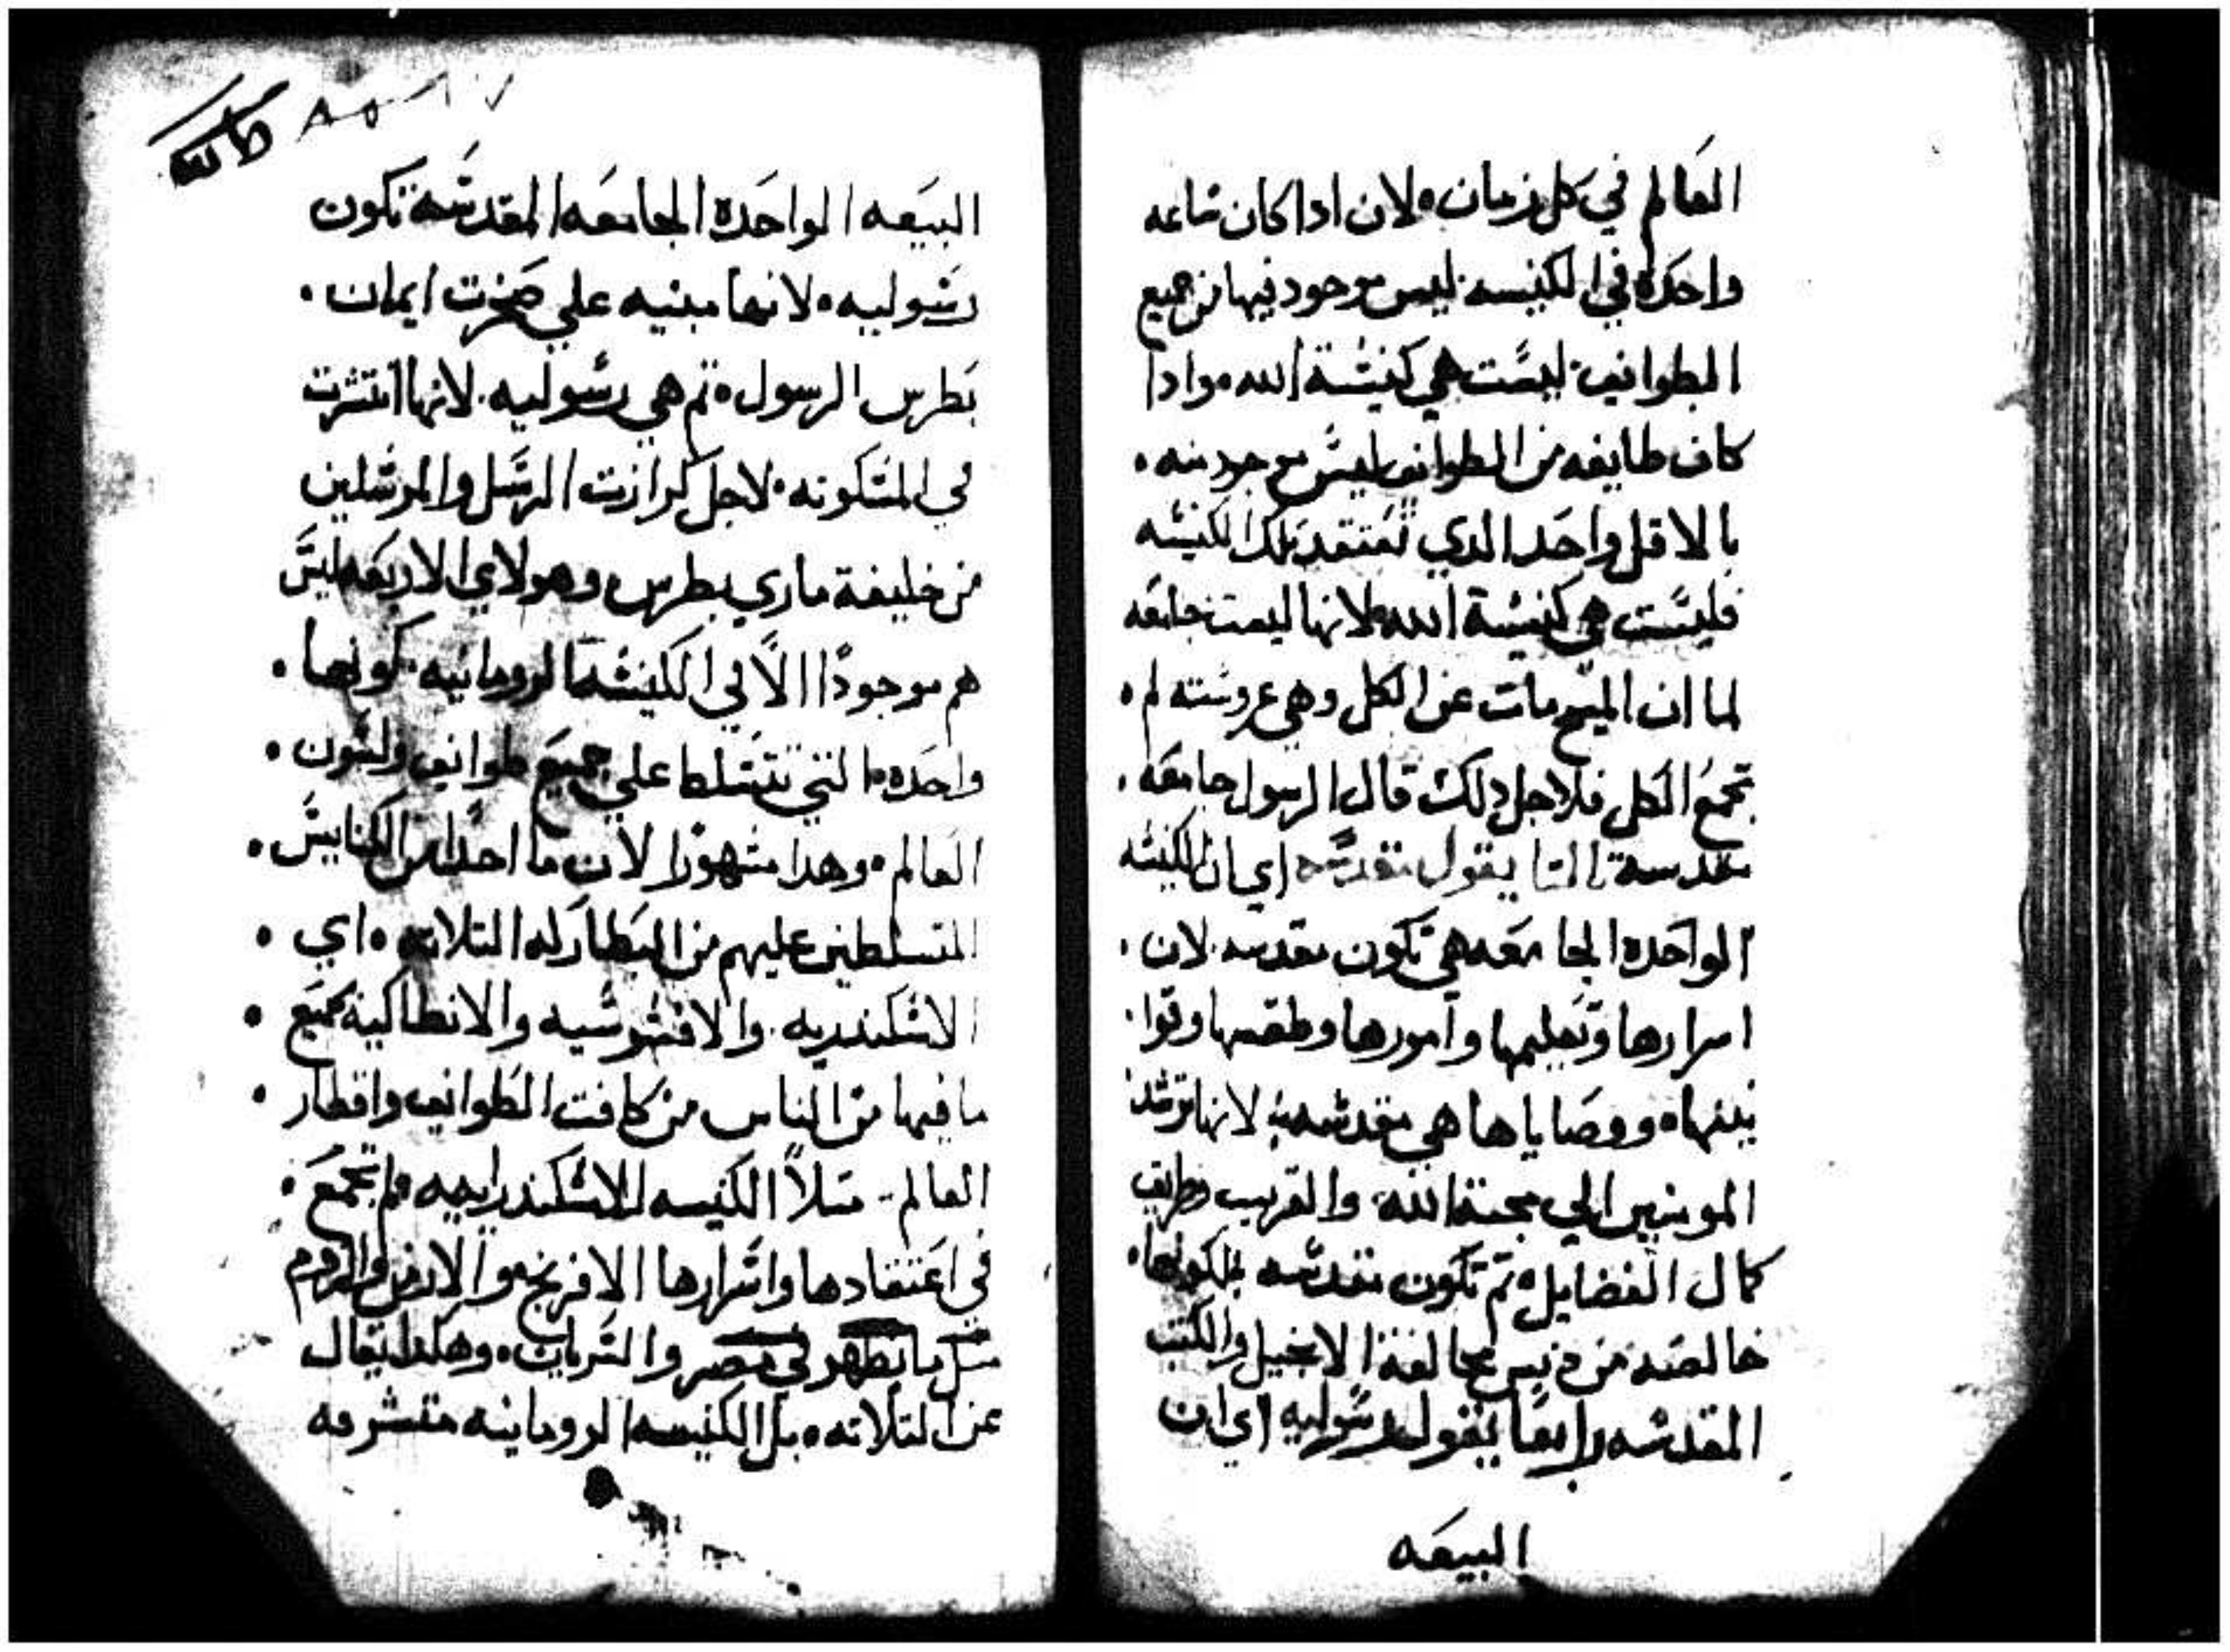 العالم في كل زمان ۰ لان ادا كان ساعه
واحده في الكنيسه ليس موجود فيها من جميع
الطوايف ليست هي كنيسة الله ۰ وادا
كان طايفه من الطوايف ليس موجود منه ۰
بالاقل واحد الدي تعتقد تلك الكنيسه
فليست هي كنيسة الله لانها ليست جامعه
لما ان المسيح مات عن الكل وهي عروسته لم ۰
تجمع الكل فلاجل دلك قال الرسول جامعه ۰
مقدسة تالتا يقول مقدسه اي ان الكنيسه
الواحده الجامعه هي تكون مقدسه لان ۰
اسرارها وتعليمها وامورها وطقسها وقوا
نينها ۰ ووصاياها هي مقدسه لانها ترشد
المومنين الي محبة الله والقريب وطريق
كمال الفضايل ۰ تم تكون مقدسه لكونها ۰
خالصه من دنس مخالفة الانجيل والكتب
المقدسه رابعا يقول رسوليه اي ان
البيعه
البيعه الواحده الجامعه المقدسه تكون
رسوليه ۰ لانها مبنيه علي صخرت ايمان ۰
بطرس الرسول ۰ تم هي رسوليه لانها انتشرت
في المسكونه ۰ لاجل كرازت الرسل والمرسلين
من خليفة ماري بطرس وهولاي الاربعه ليس
هم موجودا الا في الكنيسة الرومانيه كونها ۰
واحده ۰ التي تتسلط علي جميع طوايف ولسون ۰
العالم ۰ وهدا مشهورا لان ما احدا من الكنايس ۰
المتسلطين عليهم من البطاركه التلاته ۰ اي ۰
الاسكندريه والافسوسيه والانطاكية تجمع ۰
ما فيها من الناس من كافت الطوايف واقطار ۰
العالم متلا الكنيسه الاسكندرانيه لم تجمع ۰
في اعتقادها واسرارها الافرنج والارمن والروم
متل ما يظهر في مصر والسريان ۰ وهكدا يقال
عن التلاته ۰ بل الكنيسه الرومانيه متشرفه